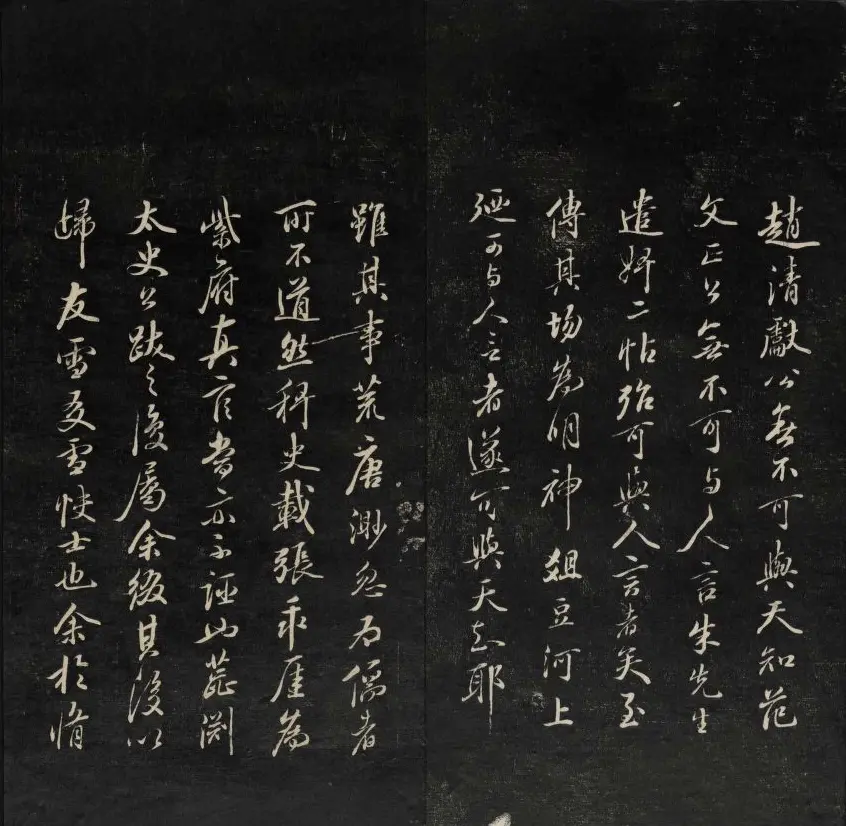 趙清獻公無不可與天知范
文正公無不可与人言朱先生
遣婢二帖殆可與人言者矣至
傳其場為明神俎豆河上
可与人言者遂可與天知耶
雖其事荒唐渺忽為儒者
所不道然稗史載張乖厓為
紫府真官當亦不誣也
太史公跋之後屬余綴其後以
歸友雪友雪快士也余於脩